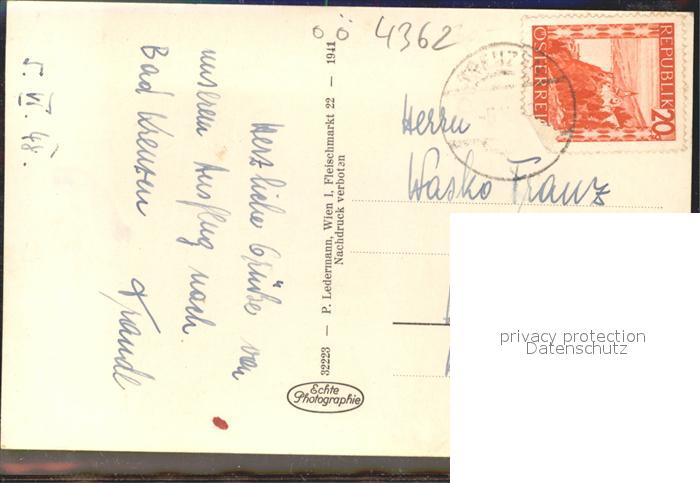 oö 4362
REPUBLIK
ÖSTERREI
20
KREUZ
5. VI. 48.
Herzliche Grüße von
unserem Ausflug nach
Bad Kreuzen
Traudl
32223 — P. Ledermann, Wien I, Fleischmarkt 22 — 1941
Nachdruck verboten
Echte
Photographie
Herrn
Wasko Franz
privacy protection
Datenschutz